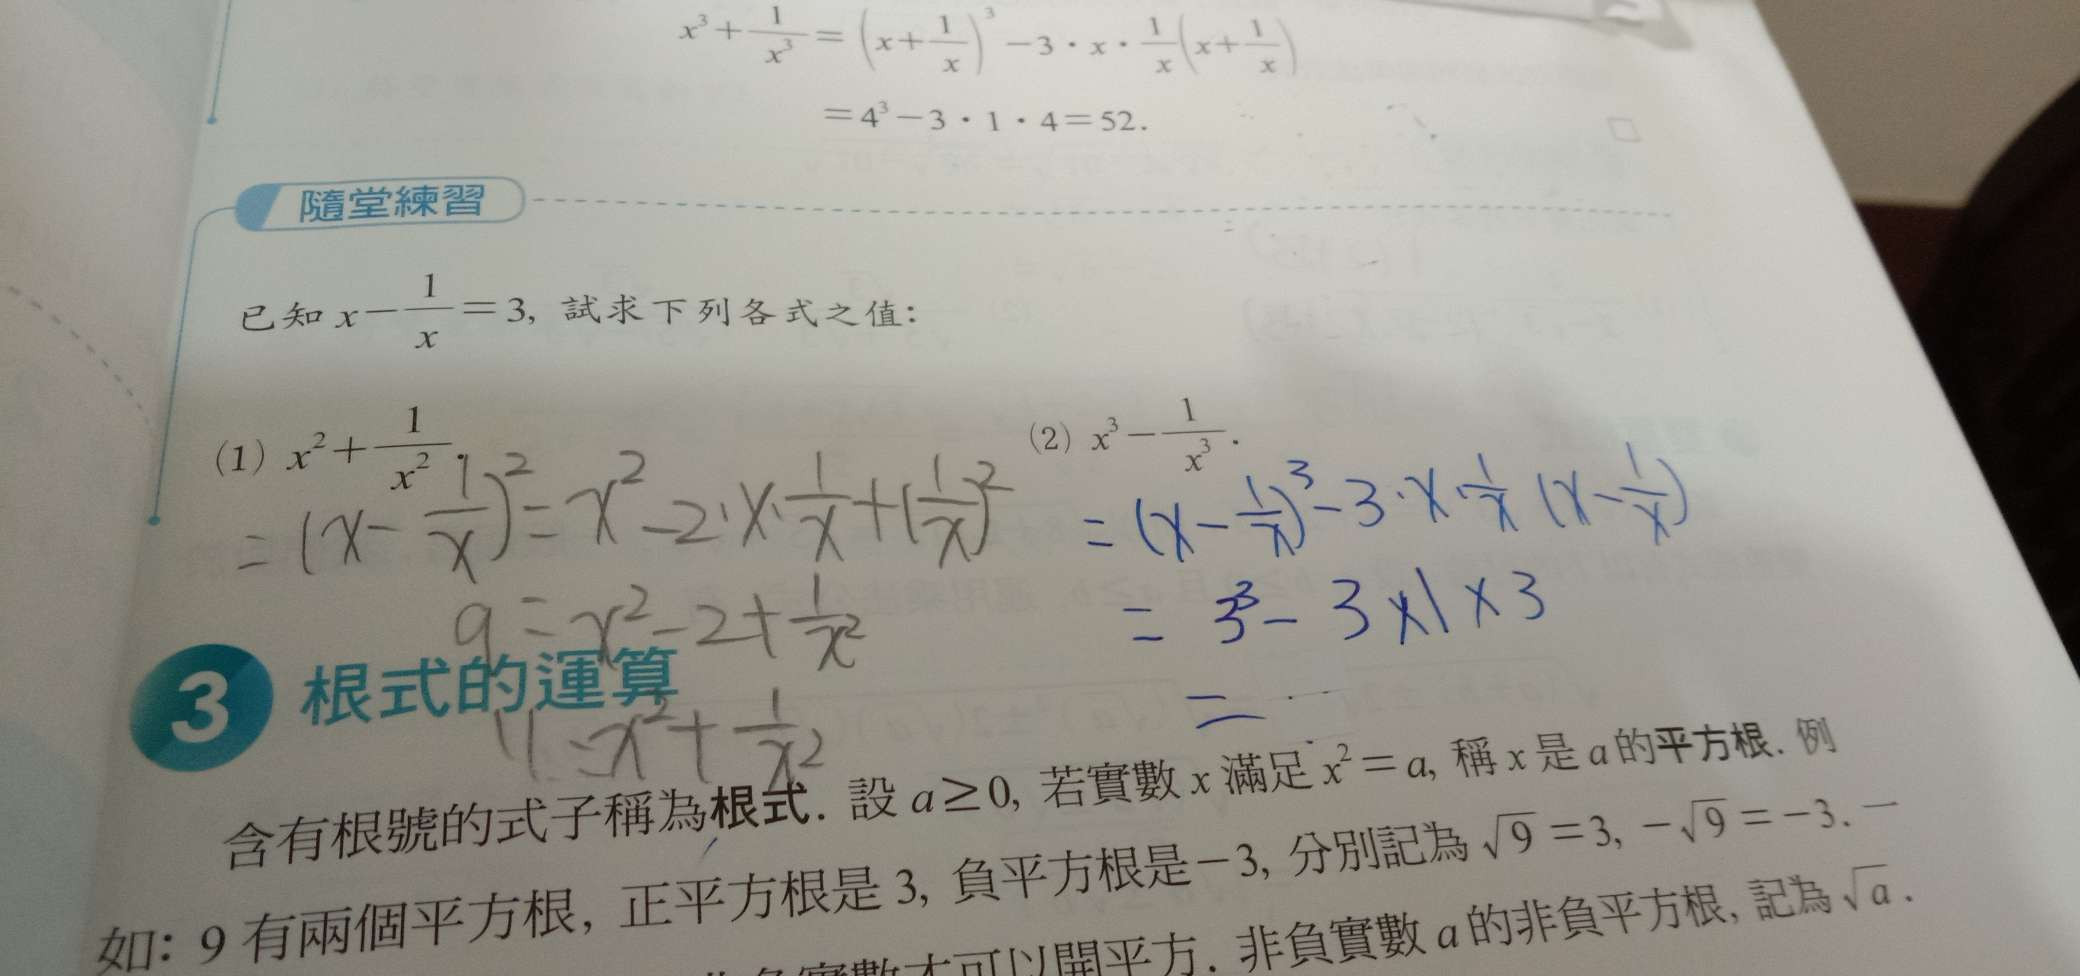 x³+1/x³=(x+1/x)³−3·x·1/x(x+1/x)
=4³−3·1·4=52.
隨堂練習
已知 x−1/x=3, 試求下列各式之值:
(1) x²+1/x². (2) x³−1/x³.
=(x-1/x)²=x²-2·x·1/x+(1/x)²
9=x²-2+1/x²
11=x²+1/x²
=(x-1/x)³-3·x·1/x(x-1/x)
=3³-3×1×3
=
3 根式的運算
含有根號的式子稱為根式. 設 a≥0, 若實數 x 滿足 x²=a, 稱 x 是 a 的平方根. 例
如: 9 有兩個平方根, 正平方根是 3, 負平方根是−3, 分別記為 √9=3, −√9=−3. 一
才可以開平方. 非負實數 a 的非負平方根, 記為 √a.